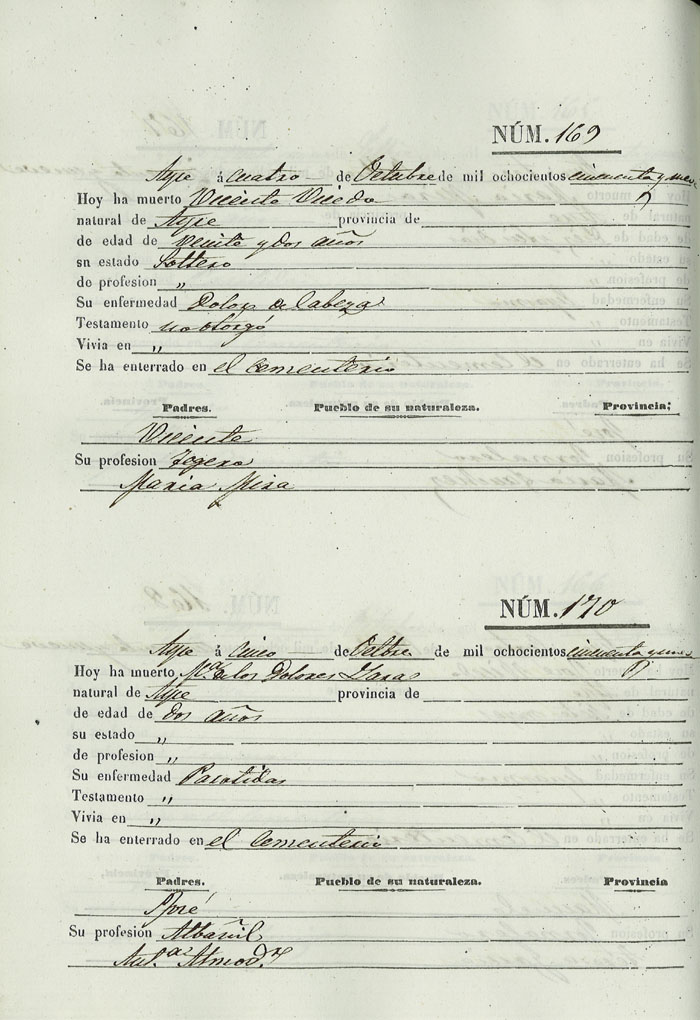 NÚM. 169
Aspe á cuatro de Octubre de mil ochocientos cincuenta y nueve
Hoy ha muerto Vicente
natural de Aspe provincia de
de edad de veinte y dos años
sn estado Soltero
de profesion „
Su enfermedad Dolor de Cabeza
Testamento no otorgó
Vivia en „
Se ha enterrado en el cementerio
Padres. Pueblo de su naturaleza. Provincia;
Vicente
Su profesion
Maria Mira
NÚM. 170
Aspe á cinco de Octbre de mil ochocientos cincuenta y
Hoy ha muerto Mª de los Dolores
natural de Aspe provincia de
de edad de dos años
su estado „
de profesion „
Su enfermedad Parotidas
Testamento „
Vivia en „
Se ha enterrado en el Cementerio
Padres. Pueblo de su naturaleza. Provincia
José
Su profesion Albañil
Antª